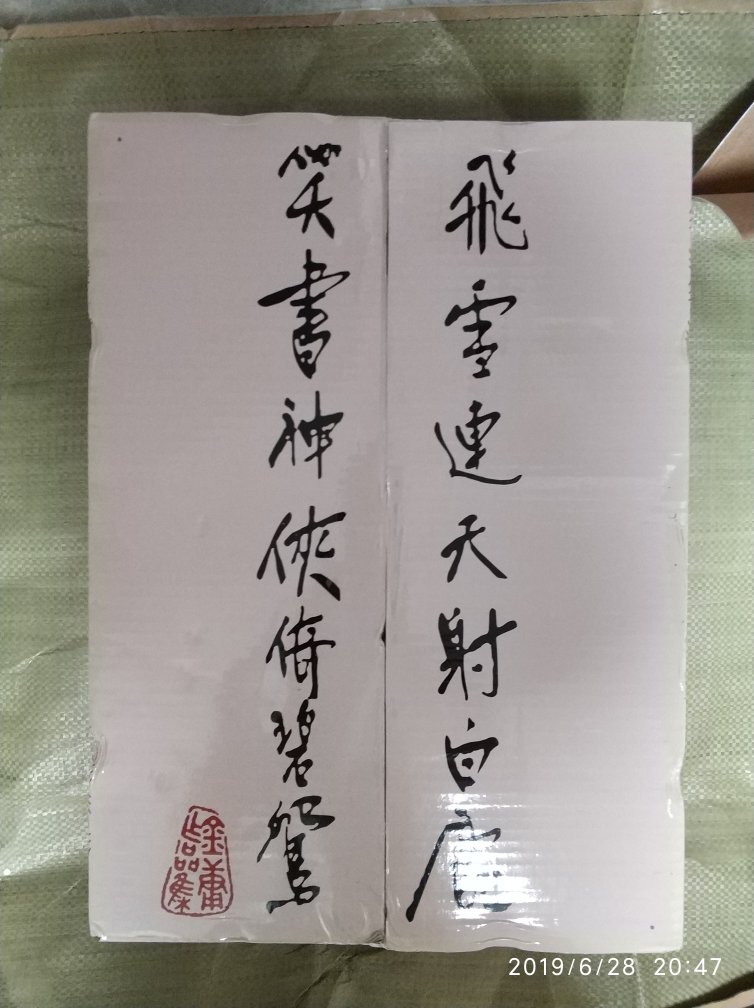 飛雪連天射白鹿
笑書神俠倚碧鴛
金庸
作品集
2019/6/28 20:47